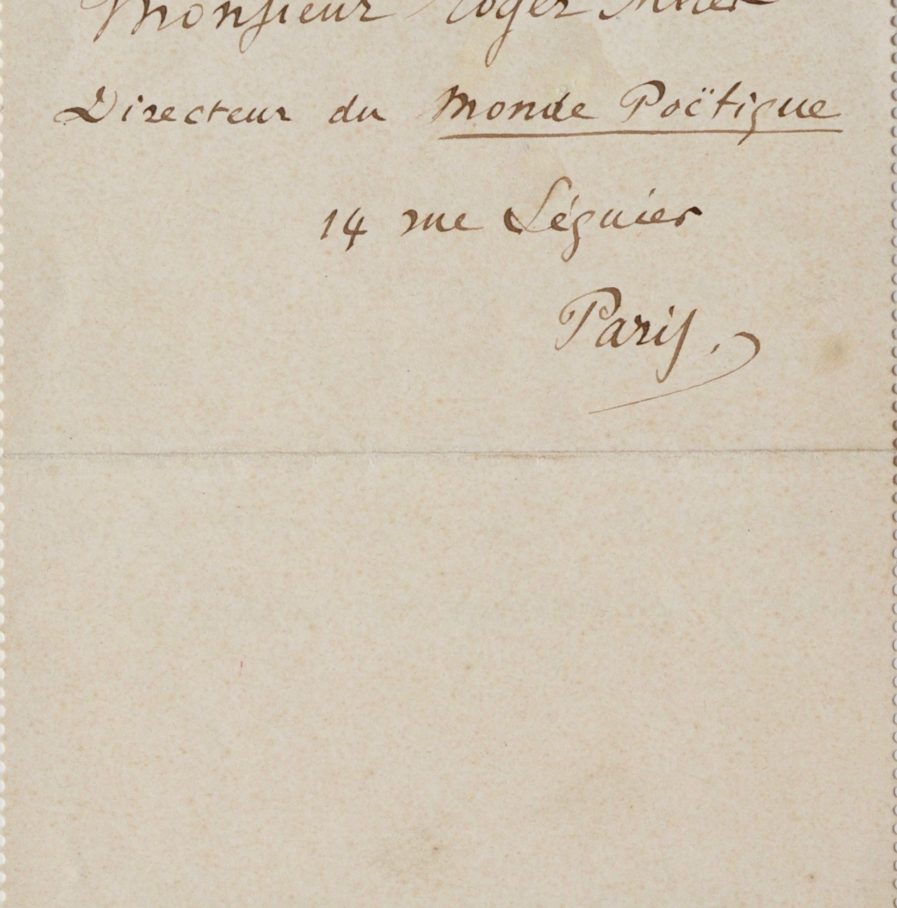 Monsieur Roger Milès
Directeur du Monde Poëtique
14 rue Séguier
Paris.